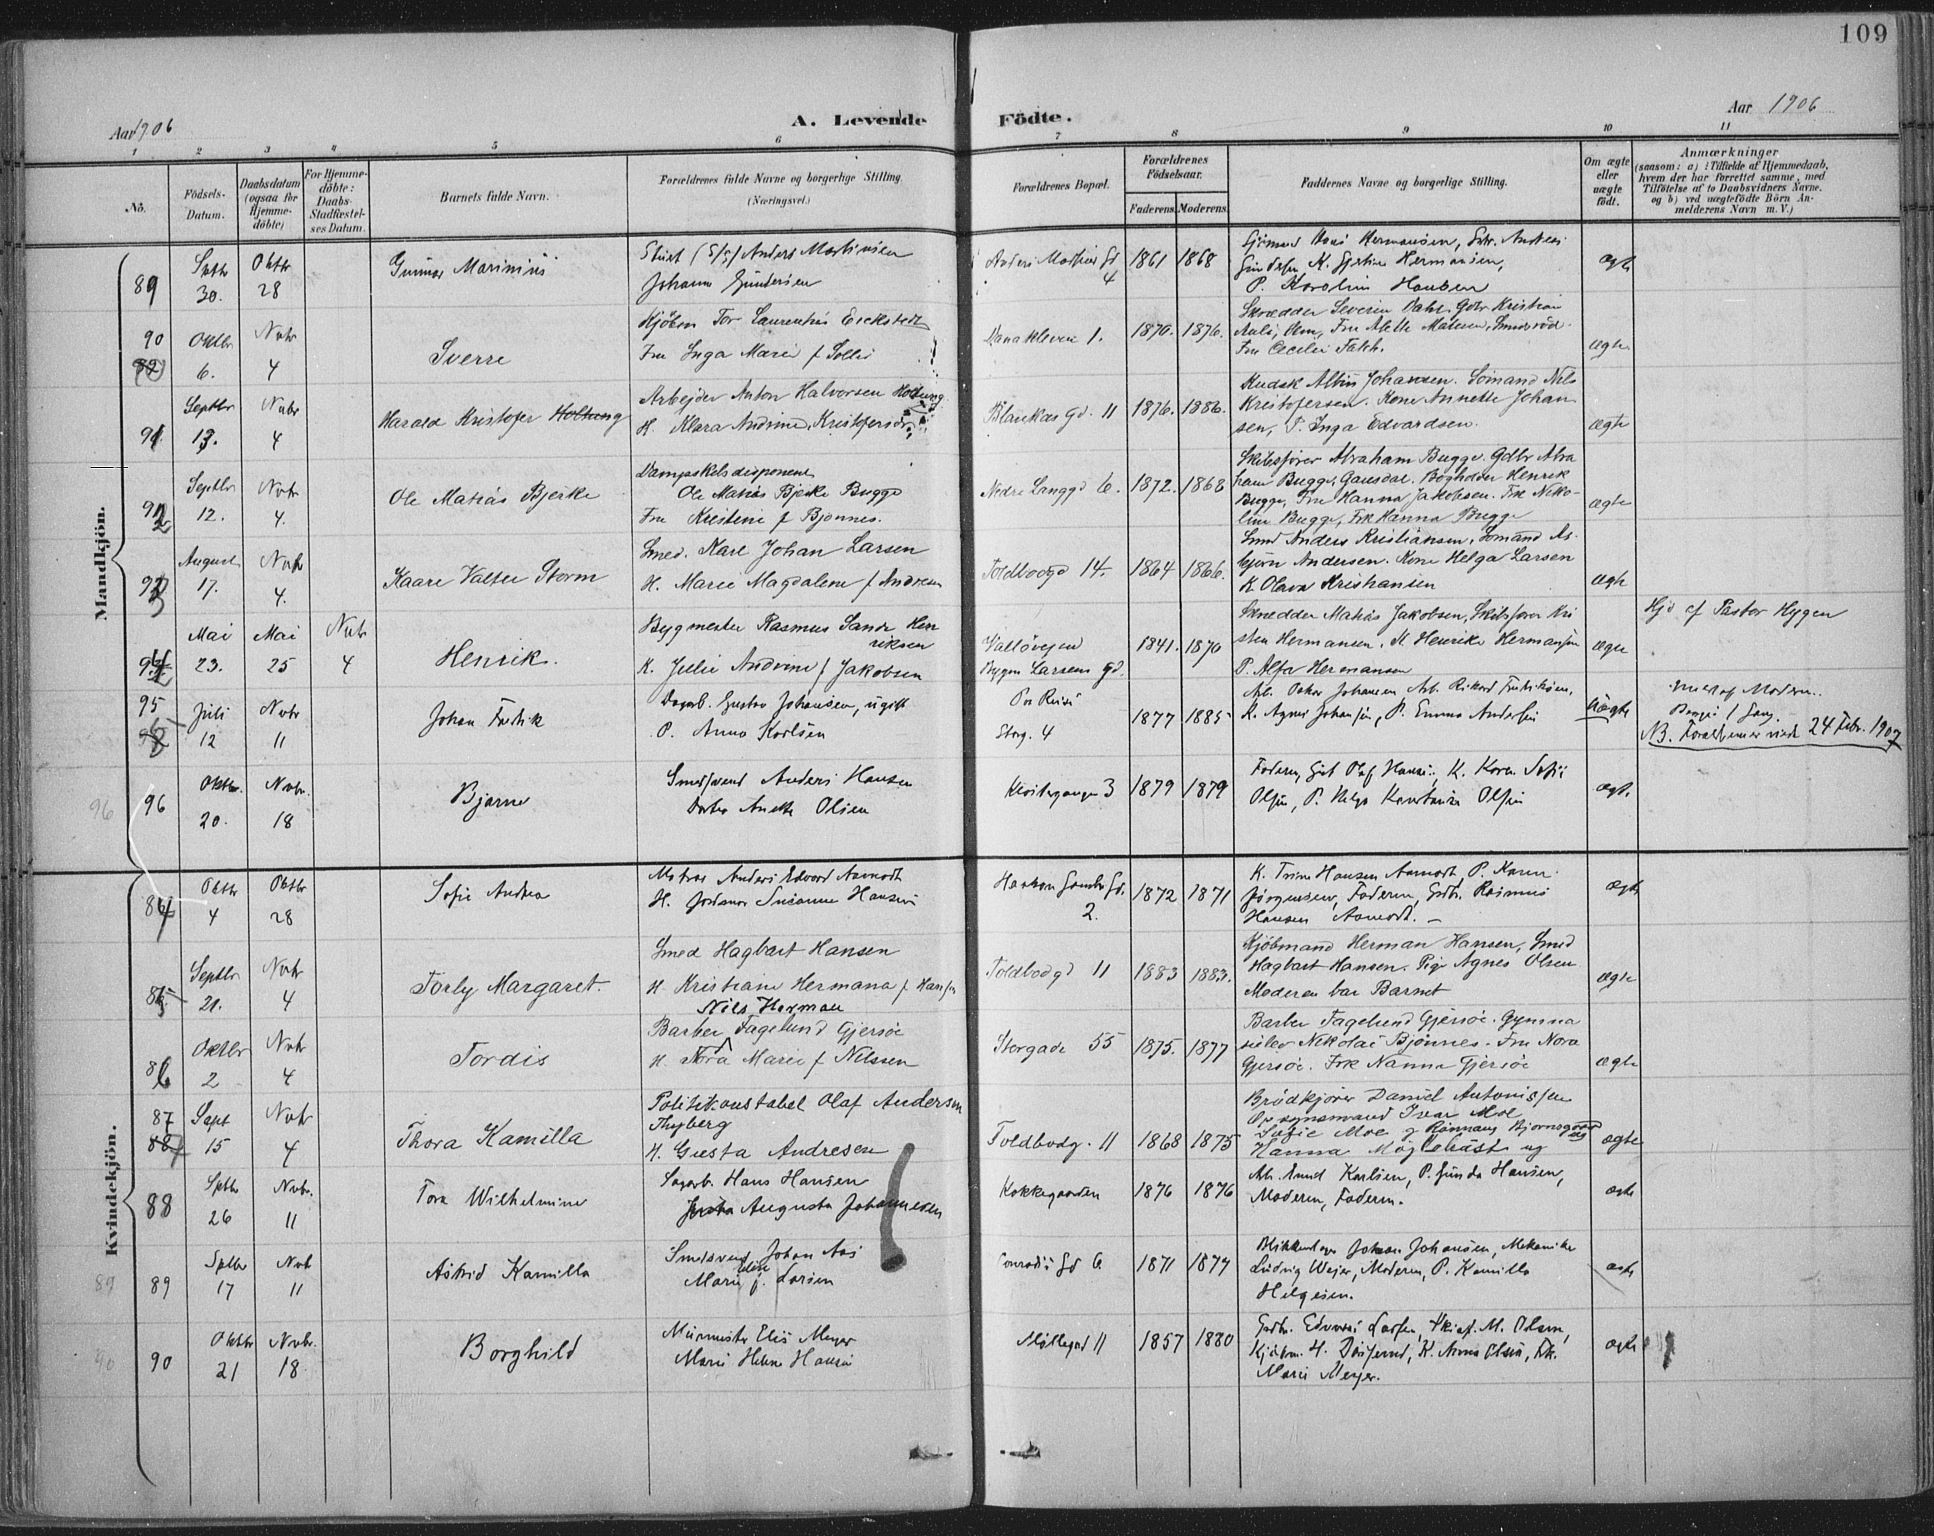 109
Aar 1906
A. Levende
Födte.
Aar 1906
1 2 3 4 5 6 7 8 9 10 11
No.
Födsels-
Datum.
Daabsdatum
(ogsaa for
Hjemme-
döbte)
For Hjemme-
döbte:
Daabs-
Stadfæstel-
ses Datum.
Barnets fulde Navn.
Forældrenes fulde Navne og borgerlige Stilling.
(Næringsvei.)
Forældrenes Bopæl.
Forældrenes
Födselsaar.
Faderens. Moderens.
Faddernes Navne og borgerlige Stilling.
Om ægte
eller
uægte
födt.
Anmærkninger
(saasom: a) i Tilfælde af Hjemmedaab,
hvem der har forrettet samme, med
Tilföielse af to Daabsvidners Navne.
og b) ved uægtefödte Börn An-
melderens Navn m. V.)
Mandkjön.
89
Septbr
30.
Oktbr
28
Gunnar Marinius
Anders Martinsen
Johanne Gundersen
4
1861 1868
Hermansen,
P. Karoline Hansen
ægte
90
Oktbr
6.
Novbr
4
Sverre
Kjöbm Tor Laurentius Eeckstedt
Fru Inga Marie f Sollie
Danakleven 1.
1870. 1876.
Skrædder Severin Dahl. Gdbr Kristian
Fru Cecilie Falch.
ægte
91
Septbr
13.
Novbr
4
Harald Kristofer Holtung
Arbejder Anton Halvorsen Holtung
H. Klara Andrine Kristofersdr.
Blankas Gd. 11
1876. 1886.
Kudsk Albin Johansen. Sömand Nils
Kristofersen. Kone Annette Johan
sen, P. Inga Edvardsen.
ægte
92
Septbr
12.
Novbr
4.
Ole Matias Bjerke
Dampskibsdisponent
Ole Matias Bjerke Bugge
Fru Kristine f Bjönnes.
Nedre Langgd 6.
1872. 1868
Skibsförer Abraham Bugge. Gdbr Abra
ham Bugge, Gausdal. Bogholder Henrik
Bugge, Fru Hanna Jakobsen. Frk Niko-
line Bugge, Frk Hanna Bugge
ægte
93
August
17.
Novbr
4.
Kaare Valter Storm
Smed. Karl Johan Larsen
H. Marie Magdalene f Andresen
Toldbodgd 14.
1864 1866.
Smed Anders Kristiansen, Sömand As-
björn Andersen. Kone Helga Larsen
K. Olava Kristiansen
ægte
94
Mai
23.
Mai
25
Novbr
4
Henrik.
Bygmester Rasmus Sande Hen
riksen
K. Julie Andrine f Jakobsen
Vallöveien
Bygm Larsens gd.
1841. 1870
Skrædder Matias Jakobsen, Skibsförer Kri
sten Hermansen, K. Henrike Hermansen
P. Alfa Hermansen
ægte
Hjd af Pastor Hygen
95
Juli
12
Novbr
11
Johan Fredrik
Dagarb. Gustav Johansen, ugift
P. Anna Karlsen
Storg. 4
1877 1885
Arb. Oskar Johansen Arb. Rikard Fredriksen,
K. Agnes Johansen, P. Emma Andersen
Uægte
Anm af Moderen.
Begges 1 Gang.
NB. Forældrene viede 24 Febr. 1907
96
96
Oktbr.
20.
Novbr.
18
Bjarne
Smedsvend Anders Hansen
Anette Olsen
Klostergangen 3
1879 1879
Faderen, Olaf Hansen, K. Karen Sofie
Olsen, P. Helga Konstanse Olsen
ægte
Kvindekjön.
84
Oktbr
4
Oktbr
28
Sofie Andrea
Matros Anders Edvard Aamodt
H. Susanne Hansen
2.
1872 1871
K. Trine Hansen Aamodt, P. Karen
Jörgensen, Faderen, Gdbr. Rasmus
Hansen Aamodt. –
ægte
85
Septbr
21.
Novbr
4
Torly Margaret.
Smed Hagbart Hansen
H. Kristiane Hermana f Hansen
Toldbodgd 11
1883 1883.
Kjöbmand Herman Hansen, Smed
Hagbart Hansen. Pige Agnes Olsen
Moderen bar Barnet
ægte
86
Oktbr
2
Novbr
4
Tordis
Nils Herman
Barber Fagelund Gjersöe
H. Tora Marie f Nilssen
Storgade 55
1875. 1877
Barber Fagelund Gjersöe. Gymna
sielev Nikolai Bjönnes. Fru Nora
Gjersöe. Frk Nanna Gjersöe
ægte
87
Sept
15
Novbr
4
Thora Kamilla
Politikonstabel Olaf Andersen
Thyberg
H. Gusta Andresen
Toldbodg. 11
1868 1875
Brödkjörer Daniel Antonissen
Opsynsmand Ivar Moe
Sofie Moe og Rönnaug Bjornsgaard
Hanna
ægte
88
Septbr
26
Novbr.
11
Tora Wilhelmine
Sagarb. Hans Hansen
Augusta Johannesen
Kokkegaarden
1876 1876
Arb. Karlsen, P. Gunda Hansen,
Moderen, Faderen.
ægte
89
89
Septbr
17
Novb
11
Astrid Kamilla
Smedsvend Johan Aas
Marie Eline f. Larsen
Conradis Gd 6
1871 1874
Johan Johansen, Mekaniker
Ludvig Wejer, Moderen, P. Kamilla
Helgesen.
ægte
90
90
Oktbr
21
Novbr.
18.
Borghild
Murmester Elis Meyer
Marie Helene Hansen
Möllegad 11
1857 1880
Larsen, M. Olsen,
K. Anna Olsen, Frk.
Marie Meyer.
ægte